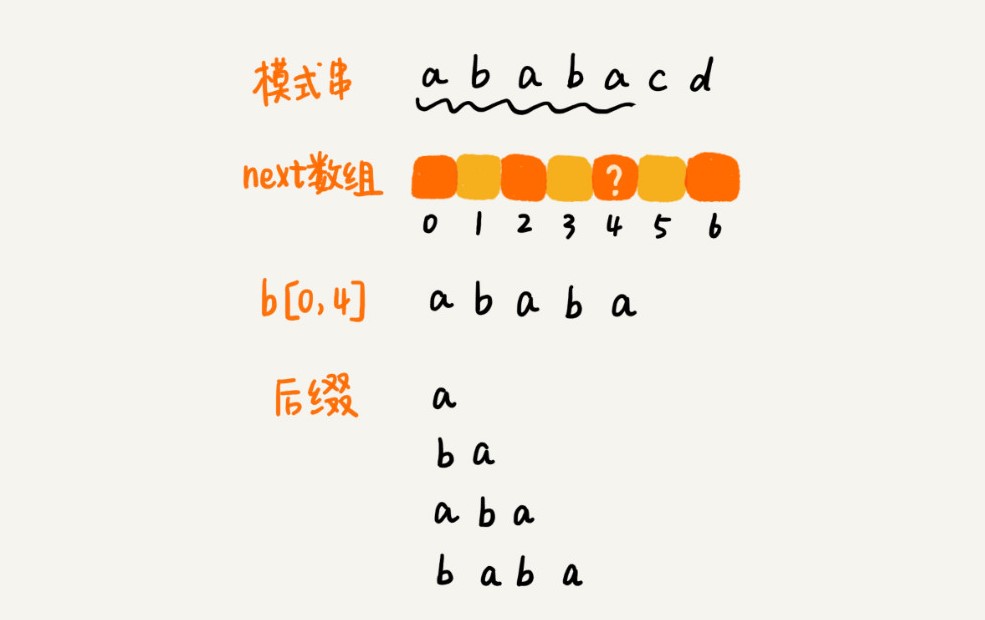 模式串 a b a b a c d
next数组 ?
0 1 2 3 4 5 6
b[0,4] a b a b a
后缀 a
b a
a b a
b a b a